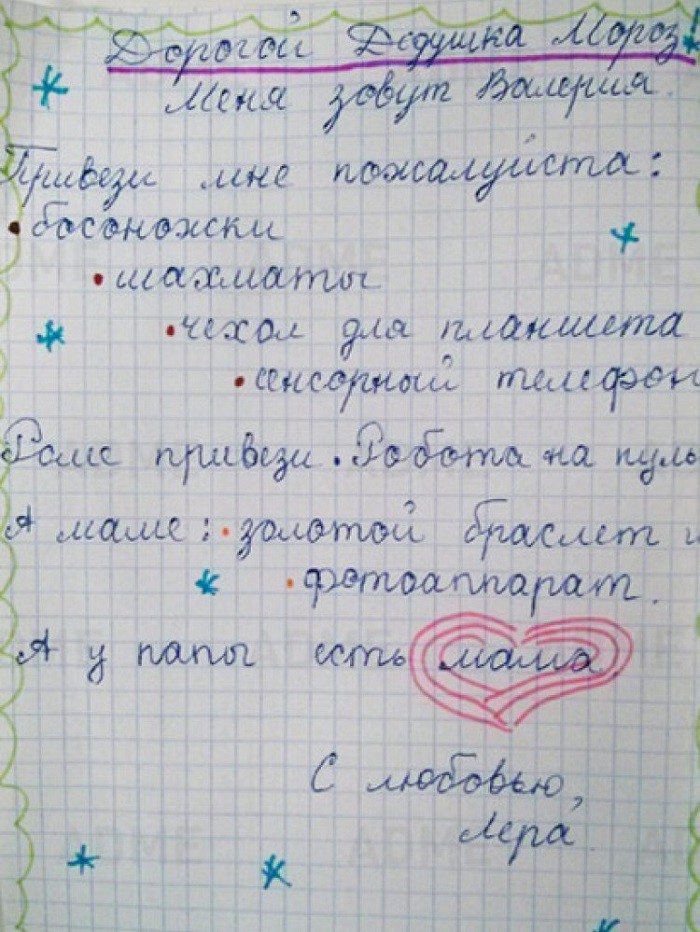 Дорогой Дедушка Мороз
Меня зовут Валерия.
Привези мне пожалуйста:
• босоножки
• шахматы
• чехол для планшета
• сенсорный телефон
Роме привези • Робота на пуль
А маме: • золотой браслет и
• фотоаппарат.
А у папы есть мама.
С любовью,
Лера.
ADME
ADME
ADME
ADME